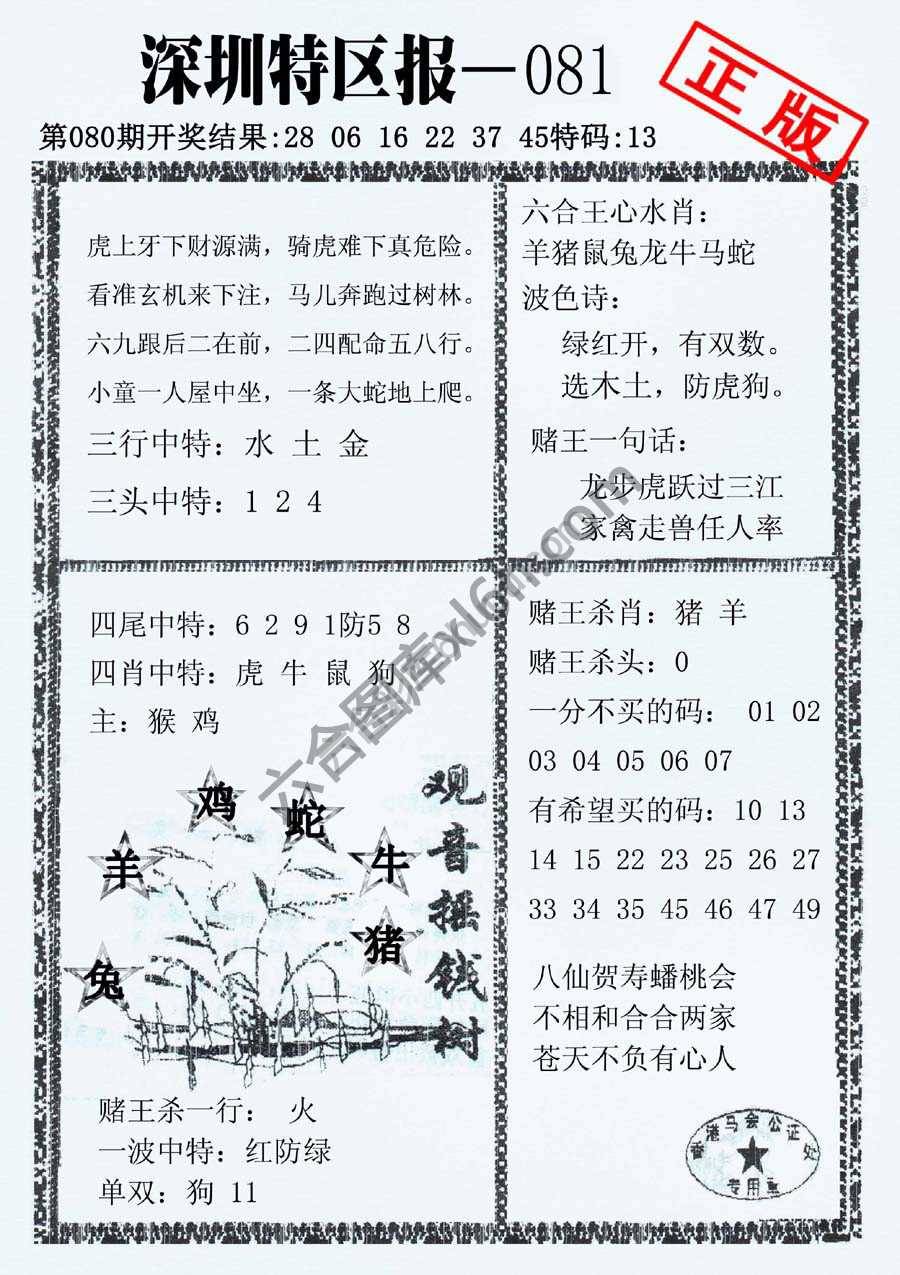 深圳特区报—081
正版
第080期开奖结果:28 06 16 22 37 45特码:13
虎上牙下财源满，骑虎难下真危险。
看准玄机来下注，马儿奔跑过树林。
六九跟后二在前，二四配命五八行。
小童一人屋中坐，一条大蛇地上爬。
三行中特：水 土 金
三头中特：1 2 4
六合王心水肖：
羊猪鼠兔龙牛马蛇
波色诗：
绿红开，有双数。
选木土，防虎狗。
赌王一句话：
龙步虎跃过三江
家禽走兽任人率
四尾中特：6 2 9 1防5 8
四肖中特：虎 牛 鼠 狗
主：猴 鸡
鸡
蛇
羊
牛
猪
兔
观音摇钱树
赌王杀一行： 火
一波中特：红防绿
单双：狗 11
赌王杀肖：猪 羊
赌王杀头：0
一分不买的码： 01 02
03 04 05 06 07
有希望买的码：10 13
14 15 22 23 25 26 27
33 34 35 45 46 47 49
八仙贺寿蟠桃会
不相和合合两家
苍天不负有心人
香港马会公证处
专用
六合图库xl6w.com